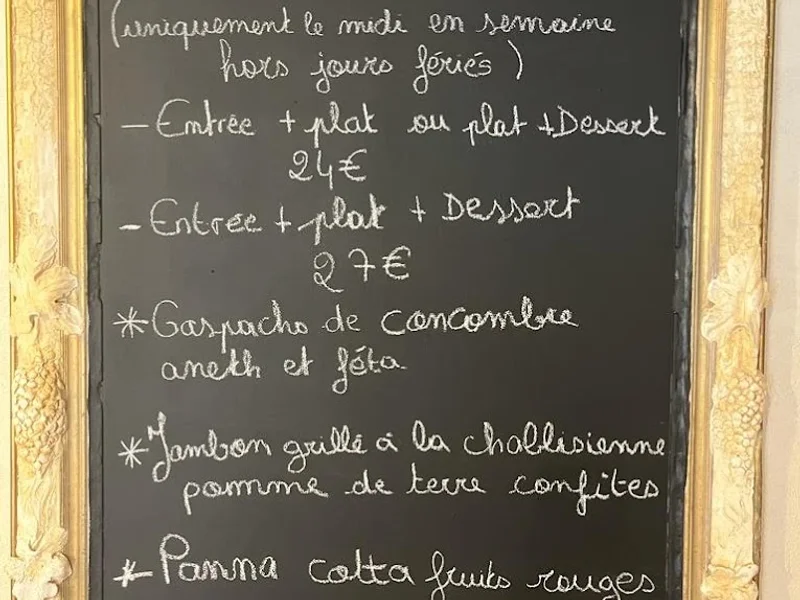 (uniquement le midi en semaine
hors jours fériés)
- Entrée + plat ou plat + Dessert
24€
- Entrée + plat + Dessert
27€
* Gaspacho de concombre
aneth et féta
* Jambon grillé à la chablisienne
pomme de terre confites
* Panna cotta fruits rouges